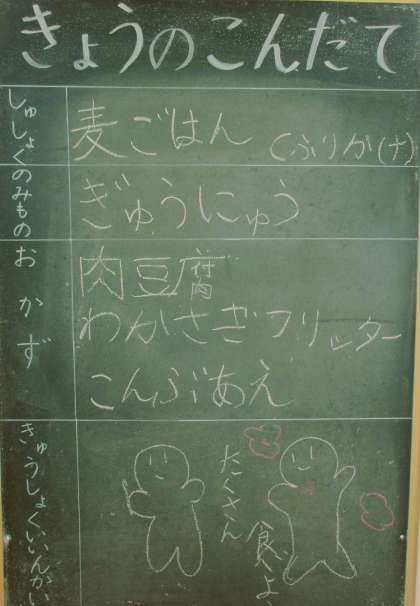 きょうのこんだて
しゅしょく
麦ごはん
のみもの
ぎゅうにゅう
おかず
肉豆腐
わかさぎフリッター
こんぶあえ
きゅうしょくいいんかい
たくさん
食べよ